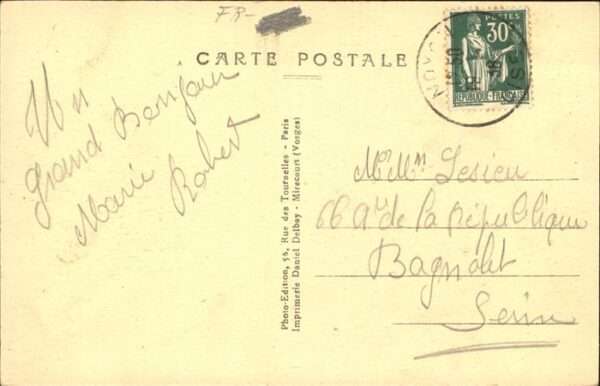 FR-
CARTE POSTALE
POSTES
30c
REPUBLIQUE FRANÇAISE
NOYON
Un
Grand Bonjour
Marie
Robert
Photo-Edition, 56, Rue des Tournelles - Paris
Imprimerie Daniel Delbay - Mirecourt (Vosges)
Mr Mm Lesieu
66 Av de la République
Bagnolet
Seine